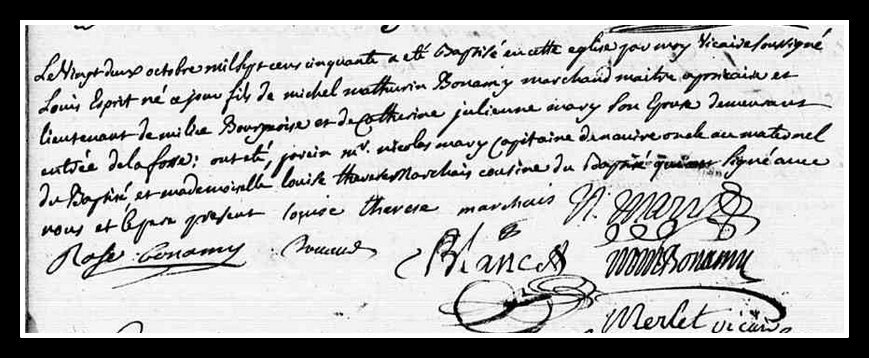 Le vingt deux octobre mil sept cens cinquante a été Baptisé en cette eglise par moy vicaire soussigné
Louis Esprit né ce jour fils de michel mathurin Bonamy marchand maitre apoticaire et
lieutenant de milice Bourgeoise et de Catherine julienne mary son Epouse demeurant
entrée de la fosse: ont été, parein mr. nicolas mary capitaine de navire oncle au maternel
du Baptisé et mademoiselle louise therese Marchais cousine du Baptisé qui ont signé avec
nous et le pere present louise therese marchais N. Mary
Rose Bonamy Blanchet MM Bonamy
Merlet vicaire